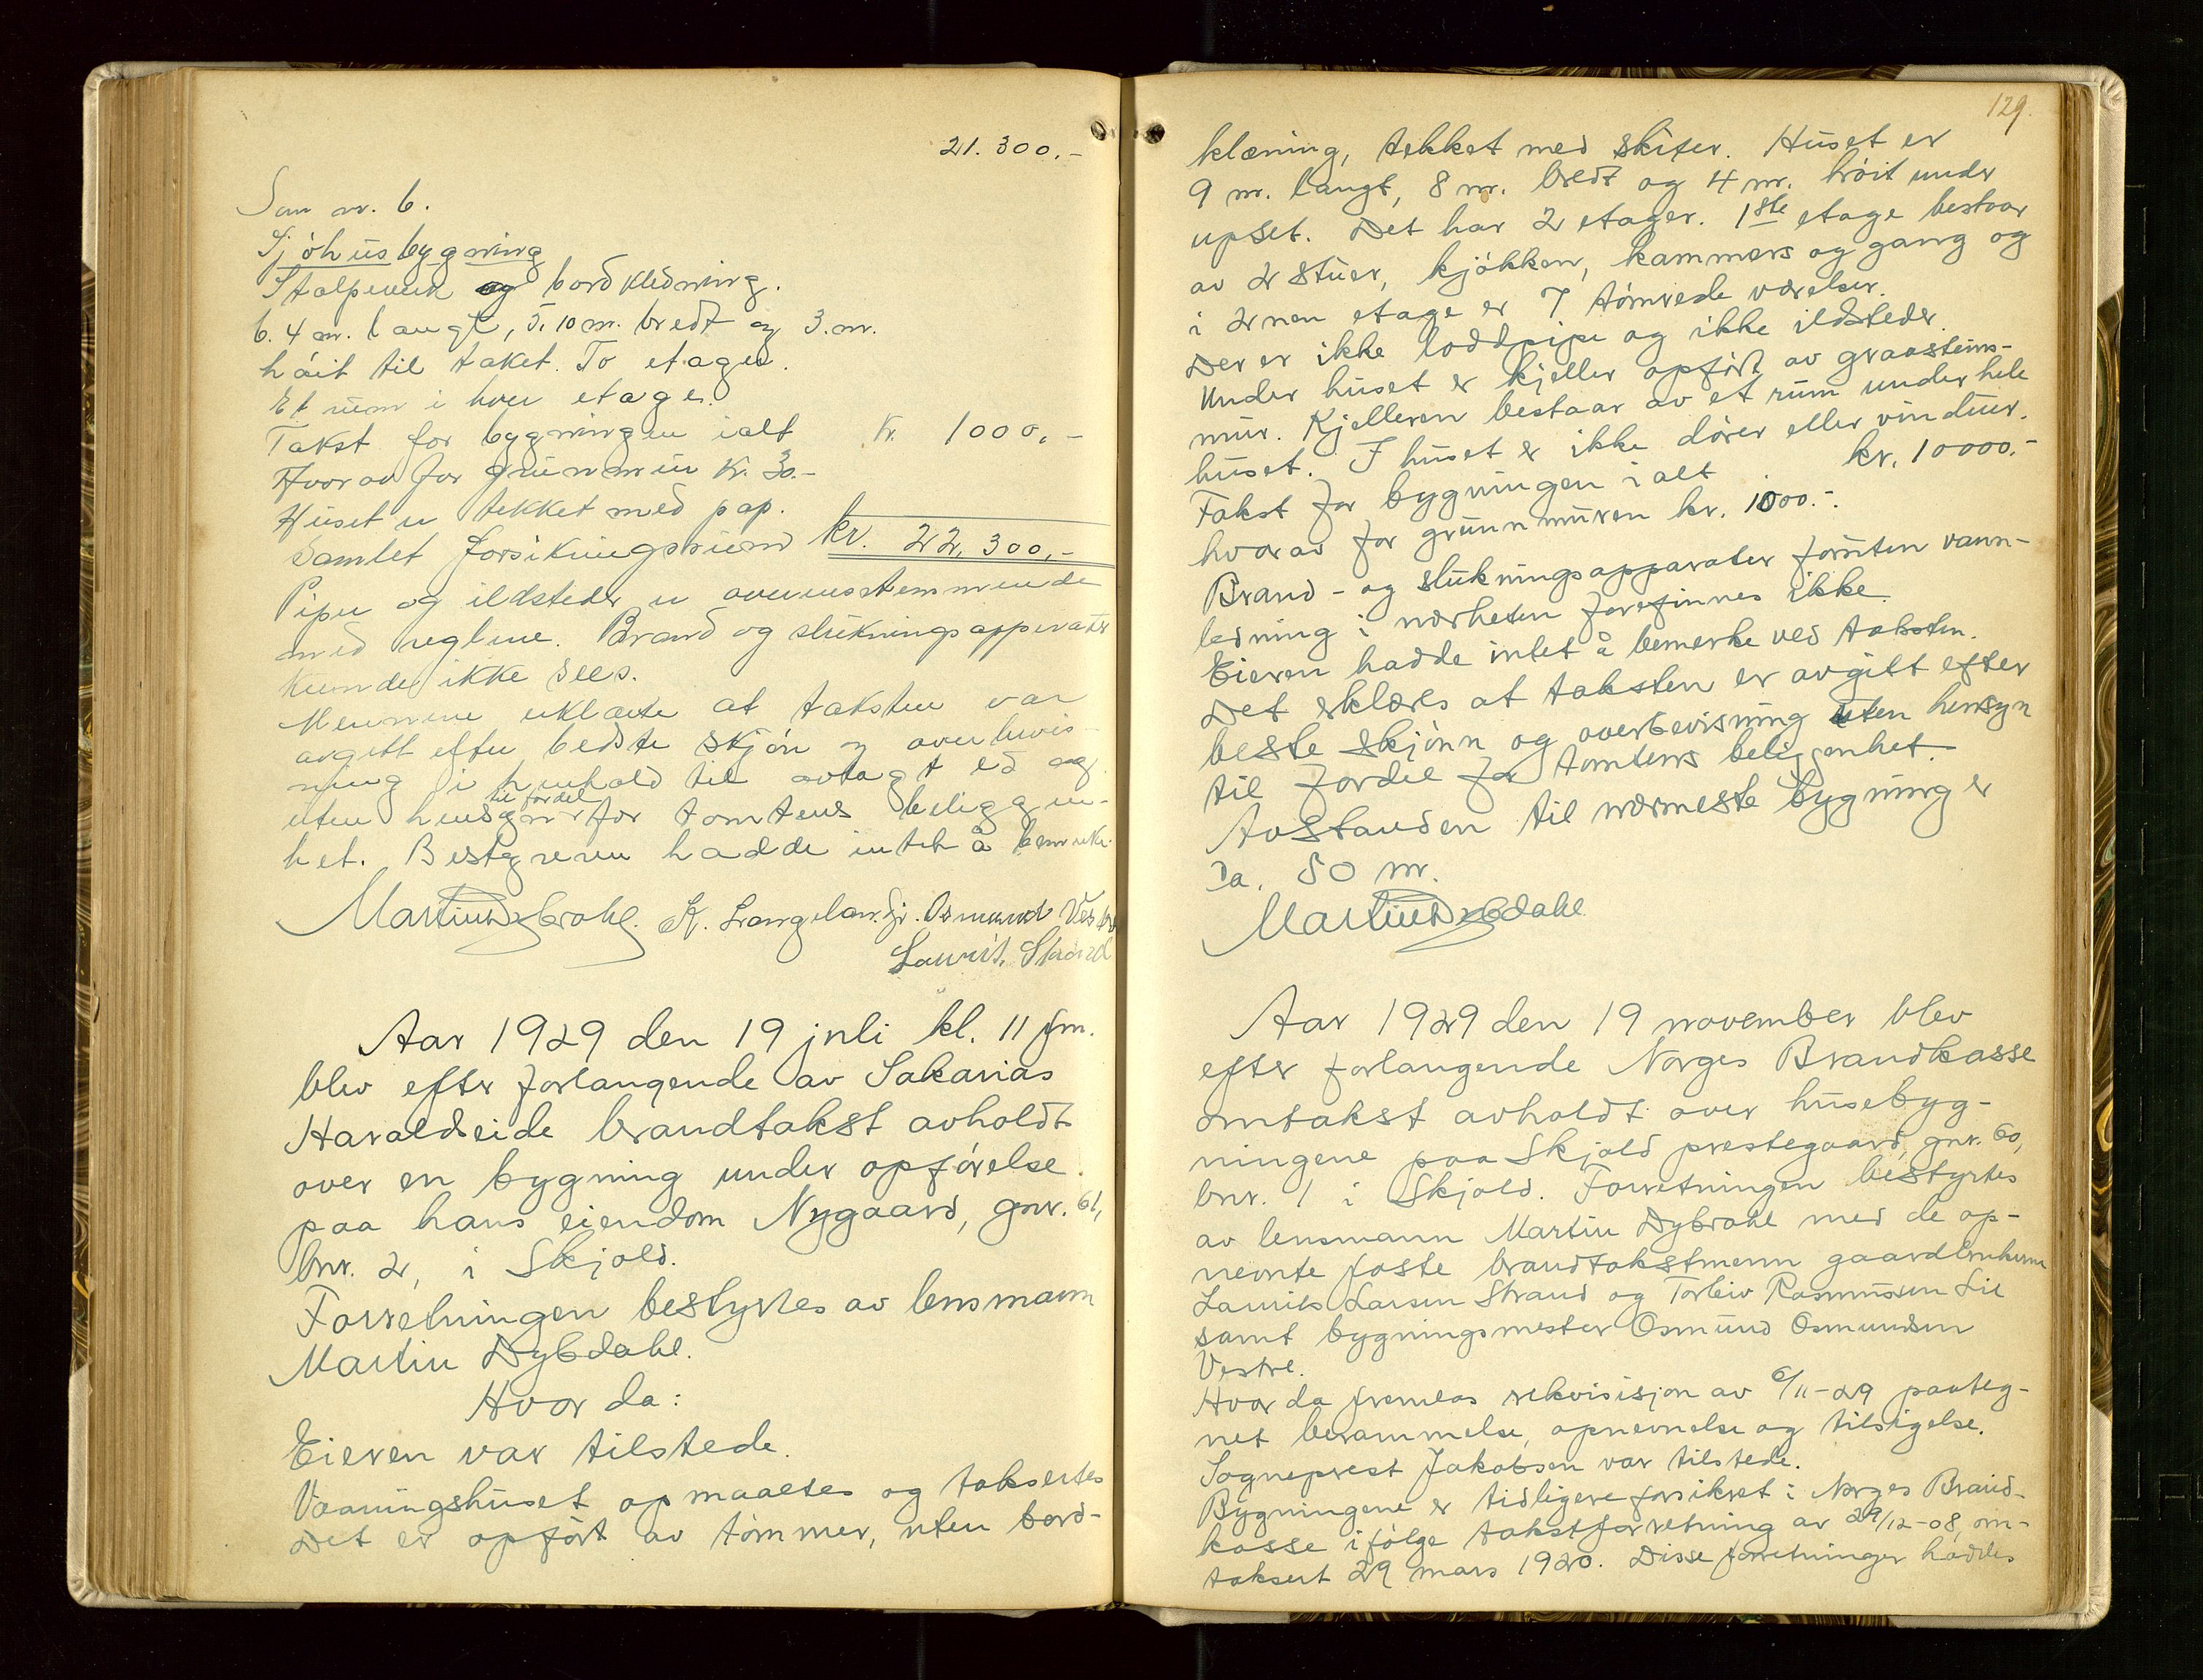 21.300.-
Som nr. 6.
Sjøhusbygning
Stolpeverk og bordkledning.
6.4 m. langt, 5.10 m. bredt og 3. m.
høit til taket. To etager.
Et rum i hver etage.
Takst for bygningen ialt Kr. 1000.-
Hvorav for grunnmur Kr. 30.-
Huset er tekket med pap.
Samlet forsikringssum kr. 22.300.-
Piper og ildsteder er overensstemmende
med reglene. Brand og slukningsapperater
kunde ikke sees.
Mennene erklærte at taksten var
avgitt efter bedste skjøn og overbevis-
ning i henhold til avlagt ed og
uten hensyn til fordel for tomtens beliggen-
het. Bestyreren hadde intet å bemerke.
Martin Dybdahl. K. Langeland. Osmund Vestre
Laurits Strand
Aar 1929 den 19 juli kl. 11 fm.
blev efter forlangende av Sakarias
Haraldseide brandtakst avholdt
over en bygning under opførelse
paa hans eiendom Nygaard, gnr. 61,
bnr. 2, i Skjold.
Forretningen bestyrtes av lensmann
Martin Dybdahl.
Hvor da:
Eieren var tilstede.
Vaaningshuset opmaaltes og taksertes
Det er opført av tømmer, uten bord-
129.
klæning, tekket med skifer. Huset er
9 m. langt, 8 m. bredt og 4 m. høit under
upset. Det har 2 etager. 1ste etage bestaar
av 2 stuer, kjøkken, kammers og gang og
i 2nen etage er 7 tømrede værelser.
Der er ikke loddpipe og ikke ildsteder.
Under huset er kjeller opført av graasteins-
mur. Kjelleren bestaar av et rum under hele
huset. I huset er ikke dører eller vinduer.
Takst for bygningen ialt kr. 10000.-
hvorav for grunnmuren kr. 1000.-.
Brand- og slukningsapparater foruten vann-
ledning i nærheten forefinnes ikke.
Eieren hadde intet å bemerke ved taksten.
Det erklæres at taksten er avgitt efter
beste skjønn og overbevisning uten hensyn
til fordel for tomtens beliggenhet.
Avstanden til nærmeste bygning er
ca. 50 m.
Martin Dybdahl
Aar 1929 den 19 november blev
efter forlangende Norges Brandkasse
omtakst avholdt over husebyg-
ningene paa Skjold prestegaard, gnr. 60,
bnr. 1 i Skjold. Forretningen bestyrtes
av lensmann Martin Dybdahl med de op-
nevnte faste brandtakstmenn gaardbrukerne
Laurits Larsen Strand og Torleiv Rasmussen Lie
samt bygningsmester Osmund Osmundsen
Vestre.
Hvor da fremlas rekvisisjon av 6/11-29 paateg-
net berammelse, opnevnelse og tilsigelse.
Sogneprest Jakobsen var tilstede.
Bygningene er tidligere forsikret i Norges Brand-
kasse ifølge takstforretning av 29/12-08, om-
taksert 29 mars 1920. Disse forretninger haddes